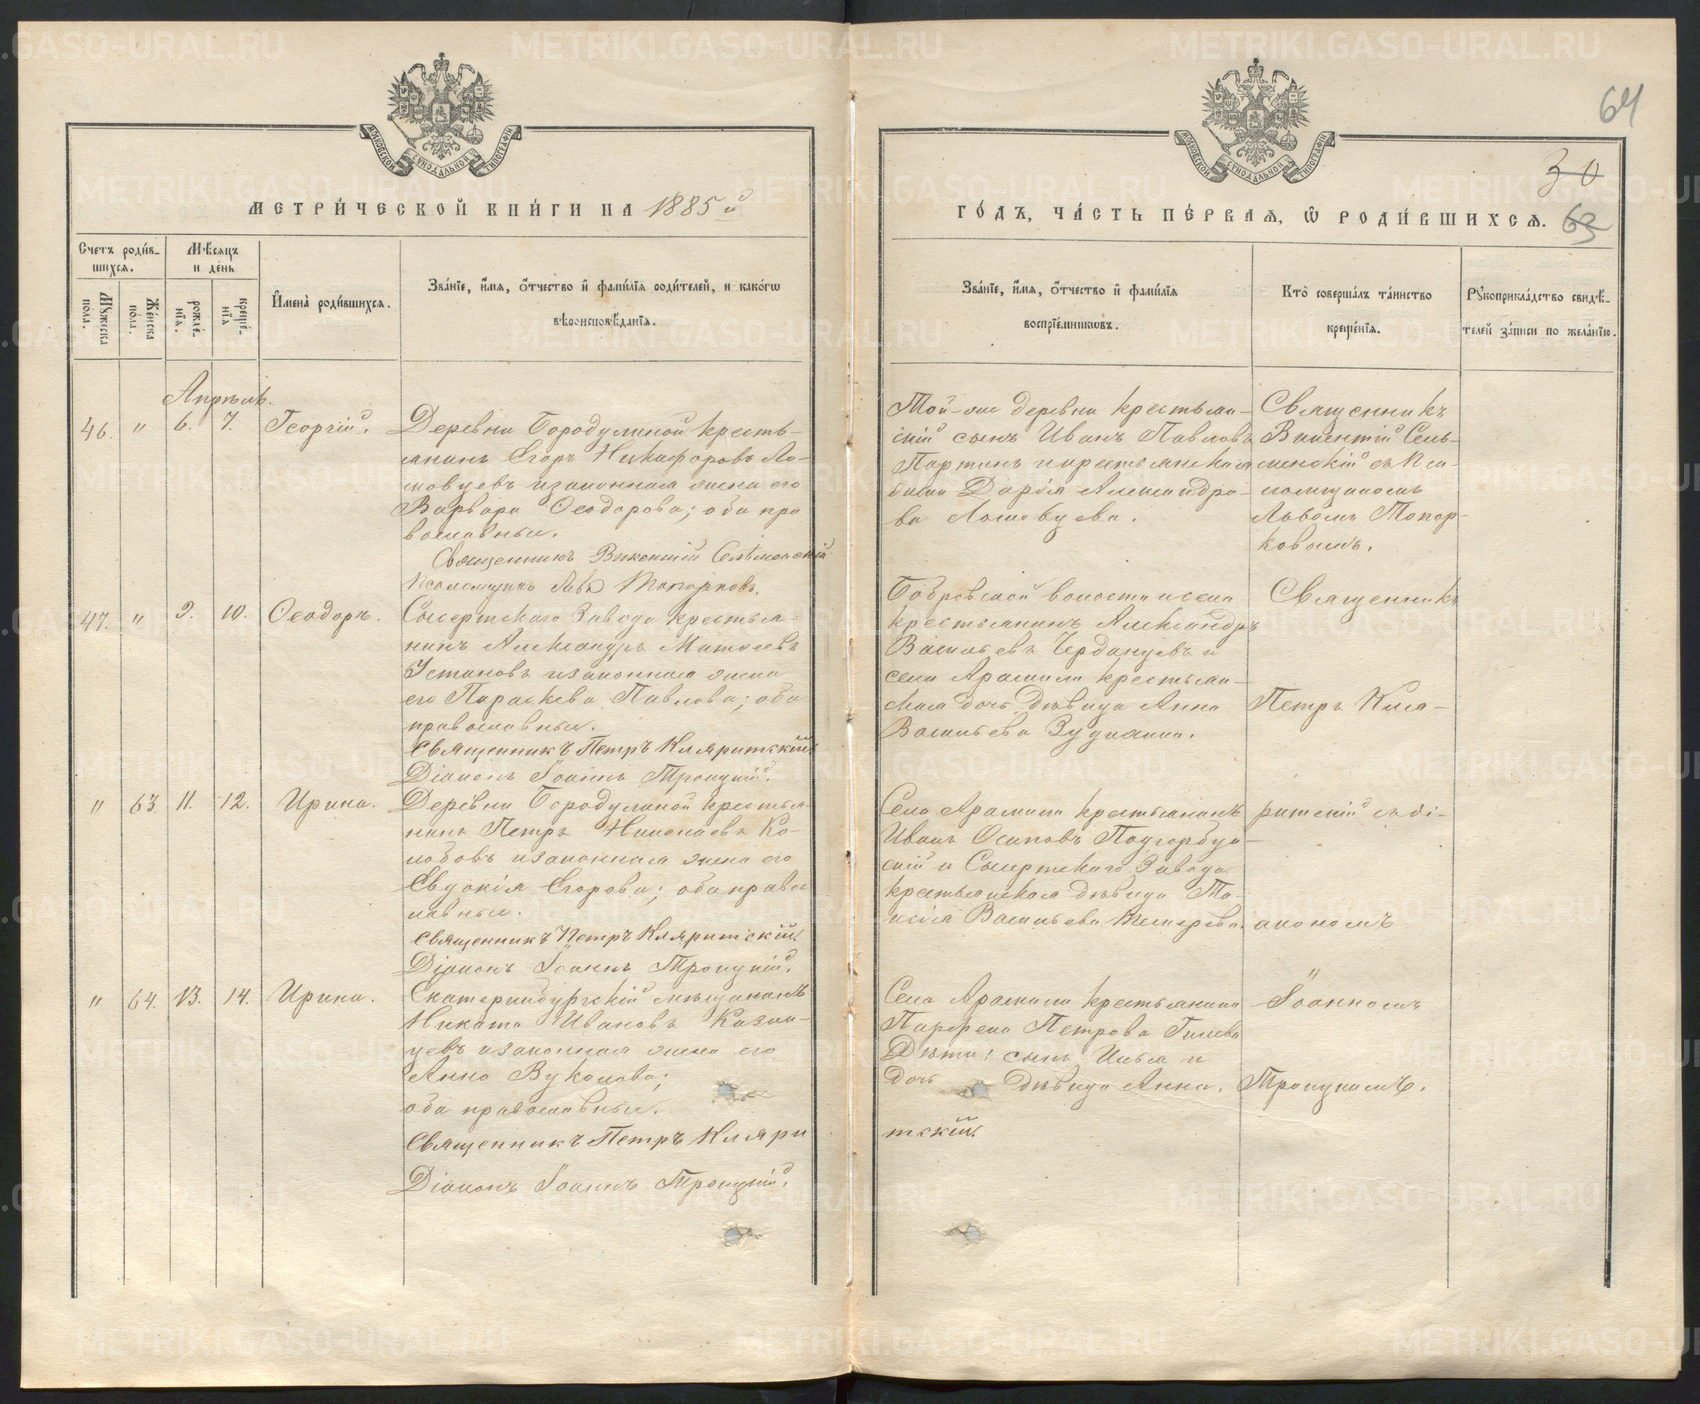 64
30
63
МЕТРИ́ЧЕСКОЙ КНИ́ГИ НА 1885 й
ГО́ДЪ, ЧА́СТЬ ПЕ́РВАЯ, Ѡ РОДИ́ВШИХСЯ.
Счетъ роди́в-
шихся.
Мꙋ́жеска пола.
Же́нска пола.
Мѣ́сяцъ
и де́нь
рожде́-
нїя.
креще́-
нїя
И҆мена̀ роди́вшихся.
Зва́нїе, и҆́мя, ѻ҆́тчество и҆ фами́лїя роди́телей, и како́гѡ
вѣроисповѣ́данїя.
Зва́нїе, и҆́мя, ѻ҆́тчество и҆ фами́лїя
воспрїе́мникѡвъ.
Кто̀ соверша́лъ та́инство
креще́нїя.
Рꙋкоприкла́дство свидѣ́-
телей за́писи по жела́нїю.
Апрѣль.
46. " 6. 7. Георгій.
Деревни Бородулиной кресть-
янинъ Егоръ Никифоровъ Ло-
мовцевъ и законная жена его
Варвара Ѳеодорова; оба пра
вославные.
Священникъ Викентій Селѣменскій
Псаломщикъ Левъ Топорковъ.
Той-же деревни крестьян-
скій сынъ Иванъ Павловъ
Партинъ и крестьянская
Дарія Александро-
ва Ломовцева.
Священникъ
Викентій Сель-
менскій съ Пса-
ломщикомъ
Львомъ Топор-
ковымъ.
47. " 9. 10. Ѳеодоръ.
Сысертскаго Завода крестья-
нинъ Александръ Матѳеевъ
Устиновъ и законная жена
его Параскева Павлова; оба
православные.
Священникъ Петръ Кляритскій
Діаконъ Іоаннъ Троицкій.
Бобровской волости и села
крестьянинъ Александръ
Васильевъ Чердынцевъ и
села Арамили крестьян-
ская дочь дѣвица Анна
Васильева
Священникъ
Петръ Кля-
" 63 11. 12. Ирина.
Деревни Бородулиной крестья-
нинъ Петръ Николаевъ Ко-
лобовъ и законная жена его
Евдокія Егорова; оба право
славные.
Священникъ Петръ Кляритскій
Діаконъ Іоаннъ Троицкій.
Села Арамили крестьянинъ
Иванъ Осиповъ Подгорбун-
скій и Сысертскаго Завода
крестьянская дѣвица Та-
исія Васильева
ритскій съ ді-
акономъ
" 64. 13. 14. Ирина.
Екатеринбургскій мѣщанинъ
Никита Ивановъ Казан-
цевъ и законная жена его
Анна Вуколова;
оба православные.
Священникъ Петръ Кляри
тскій.
Діаконъ Іоаннъ Троицкій.
Села Арамили крестьянина
Парфена Петрова Гилева
Дѣти: сынъ Илья и
дочь дѣвица Анна.
Іоанномъ
Троицкимъ.